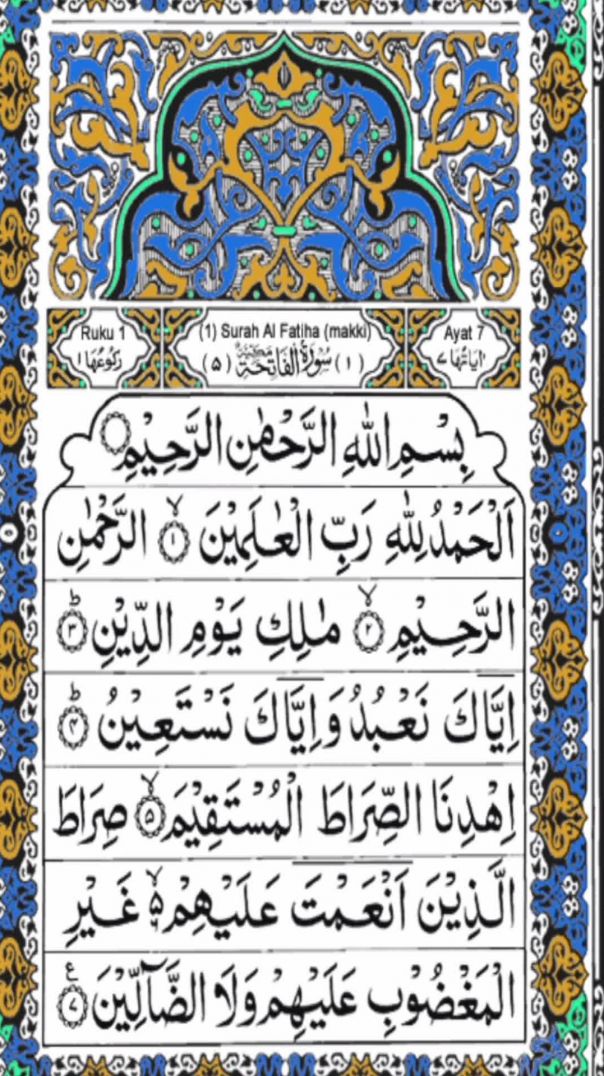 Ruku 1
رکوعھا ۱
(1) Surah Al Fatiha (makki)
(۱) سُوْرَۃُ الْفَاتِحَۃِ مَكِّیَّۃٌ (۵)
Ayat 7
اٰیَاتُھَا ۷
بِسْمِ اللّٰهِ الرَّحْمٰنِ الرَّحِیْمِ
اَلْحَمْدُ لِلّٰهِ رَبِّ الْعٰلَمِیْنَ ۙ۱ الرَّحْمٰنِ
الرَّحِیْمِ ۙ۲ مٰلِكِ یَوْمِ الدِّیْنِ ؕ۳
اِیَّاكَ نَعْبُدُ وَاِیَّاكَ نَسْتَعِیْنُ ؕ۴
اِهْدِنَا الصِّرَاطَ الْمُسْتَقِیْمَ ۙ۵ صِرَاطَ
الَّذِیْنَ اَنْعَمْتَ عَلَیْهِمْ ۙ۵ غَیْرِ
الْمَغْضُوْبِ عَلَیْهِمْ وَلَا الضَّآلِّیْنَ ۷ ع